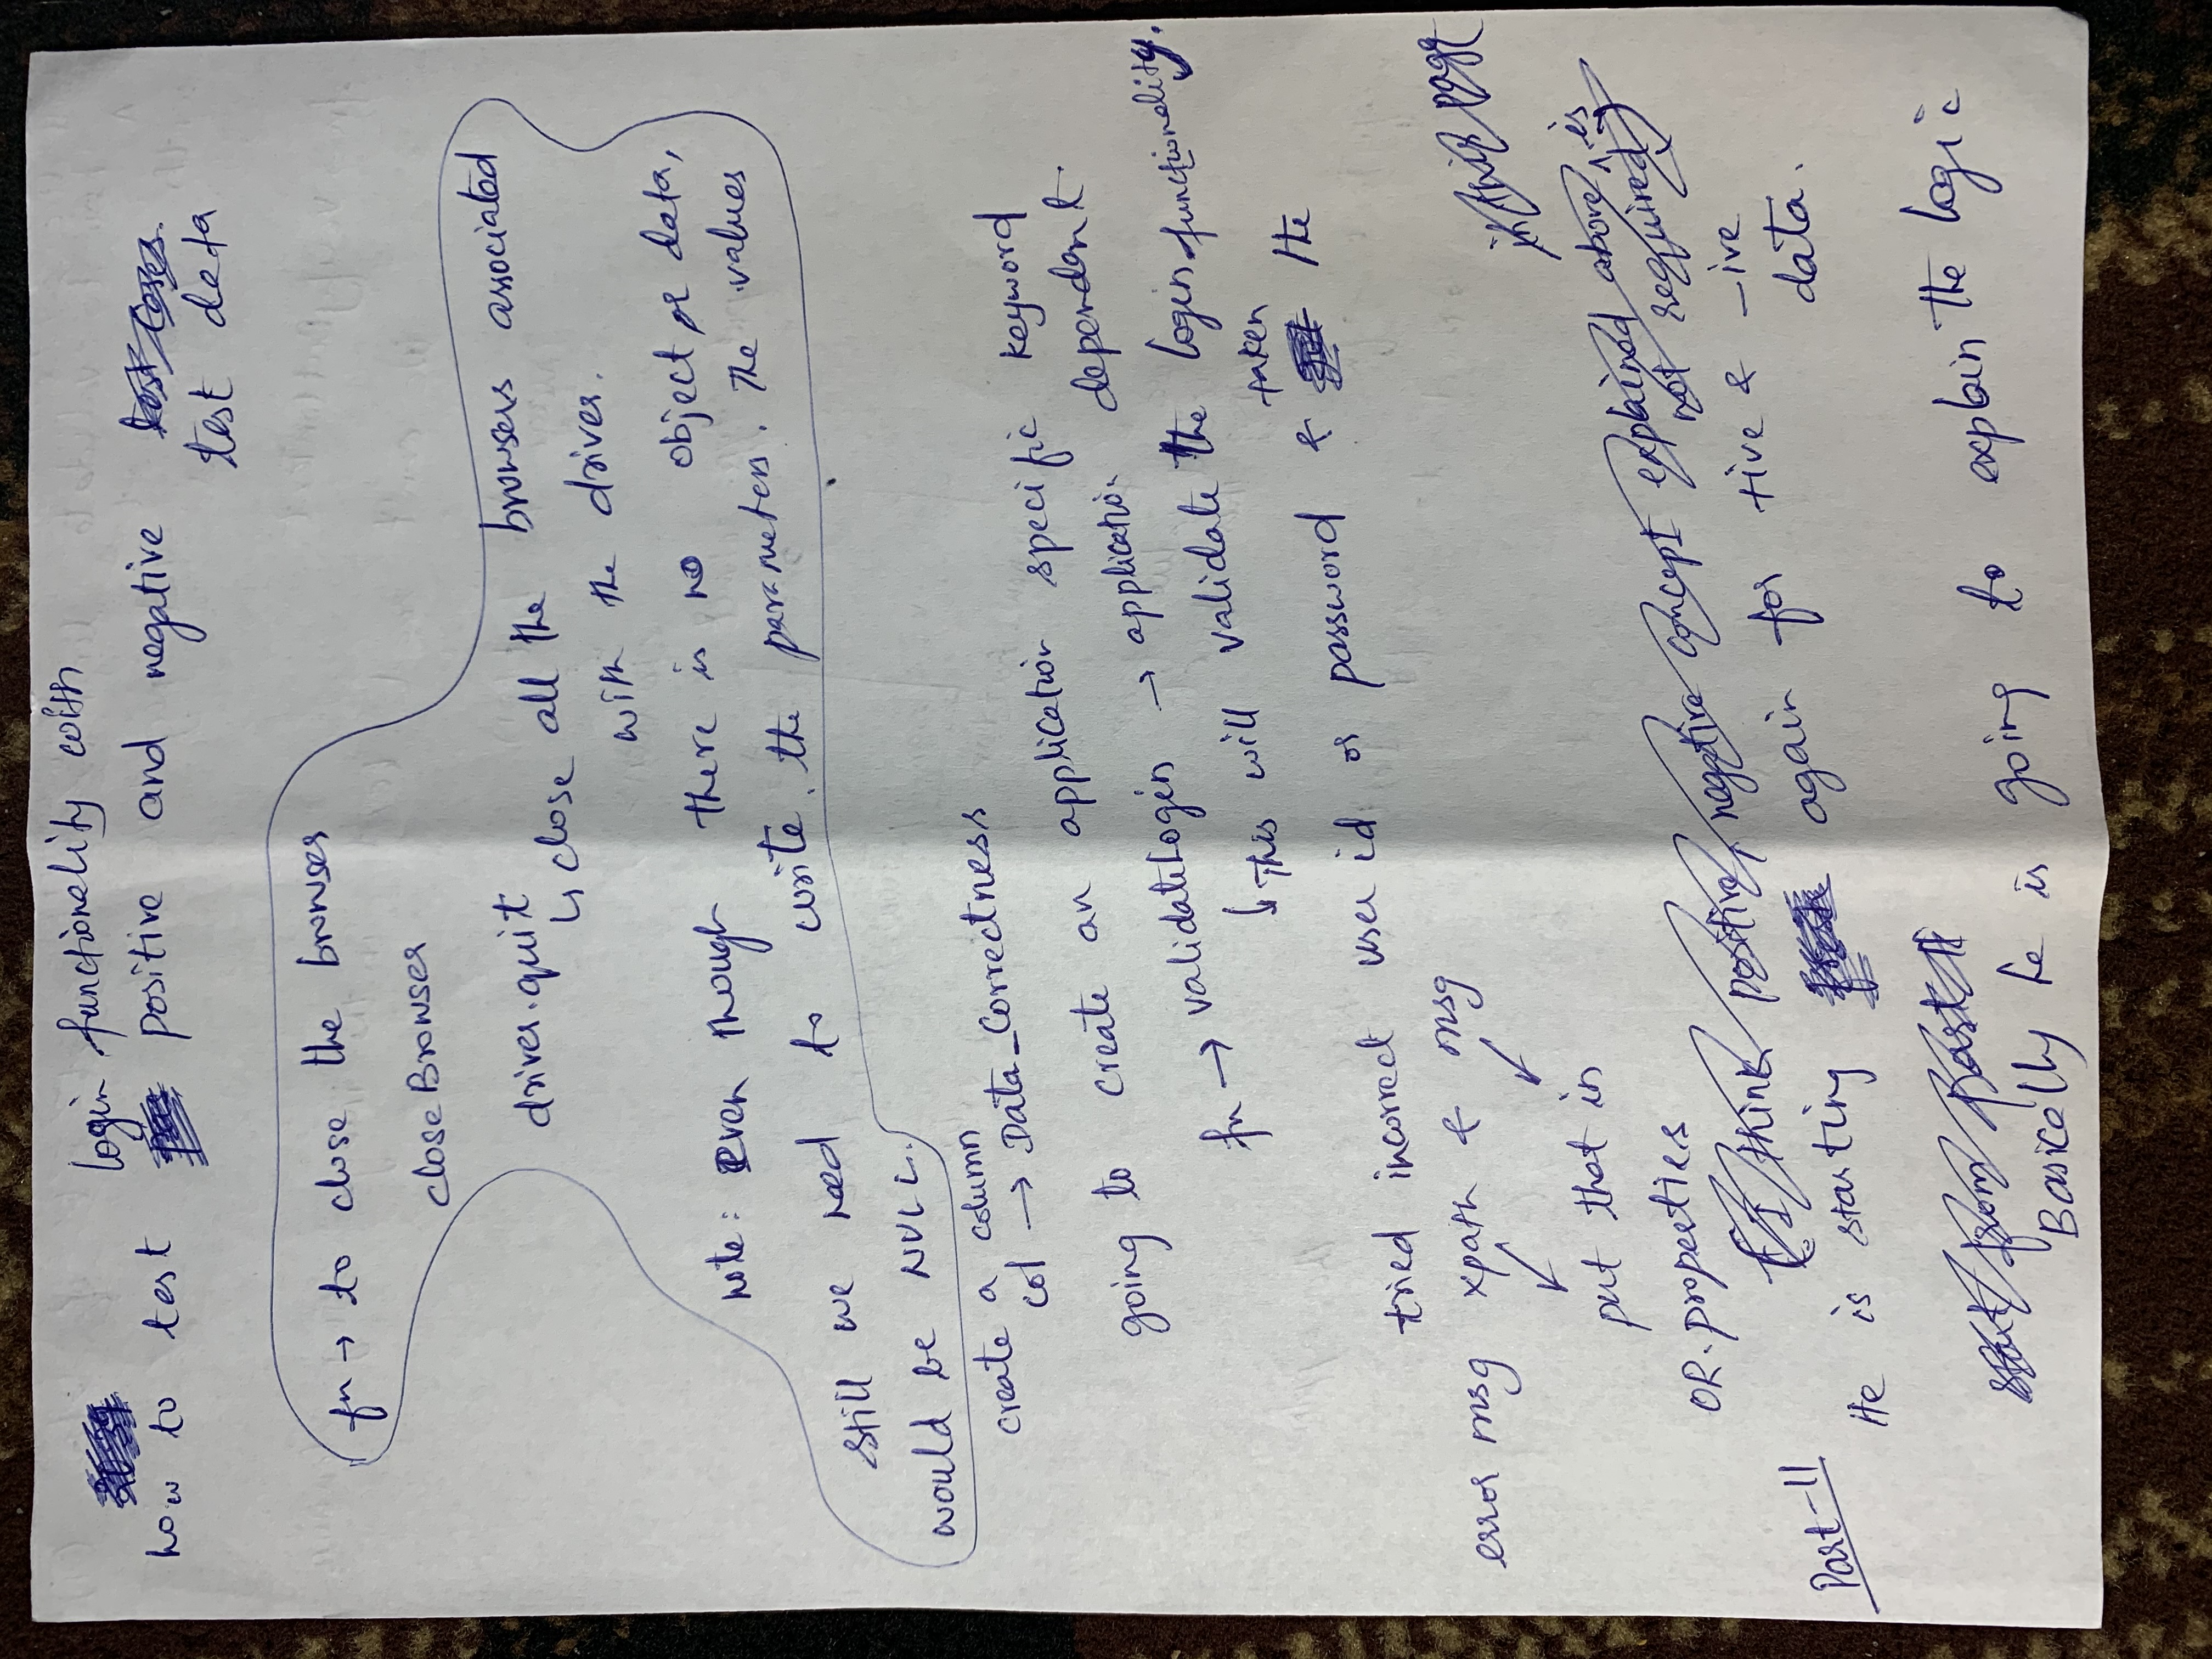 login functionality with
how to test positive and negative test cases.
test data
fn → to close the browser
closeBrowser
driver.quit
↳ close all the browsers associated
with the driver.
note: even though there is no object or data,
still we need to write the parameters. The values
would be NULL.
create a column
col → Data_Correctness
going to create an application specific keyword
fn → validateLogin → application dependent.
↳ This will validate the login functionality.
taken
tried incorrect user id or password & the
error msg xpath & msg
↙ ↙
put that in
OR.properties
in this page
(I think positive, negative concept explained above, ^ is
not required)
Part-II
He is starting again for +ive & -ive
data.
start from part II
Basically he is going to explain the logic